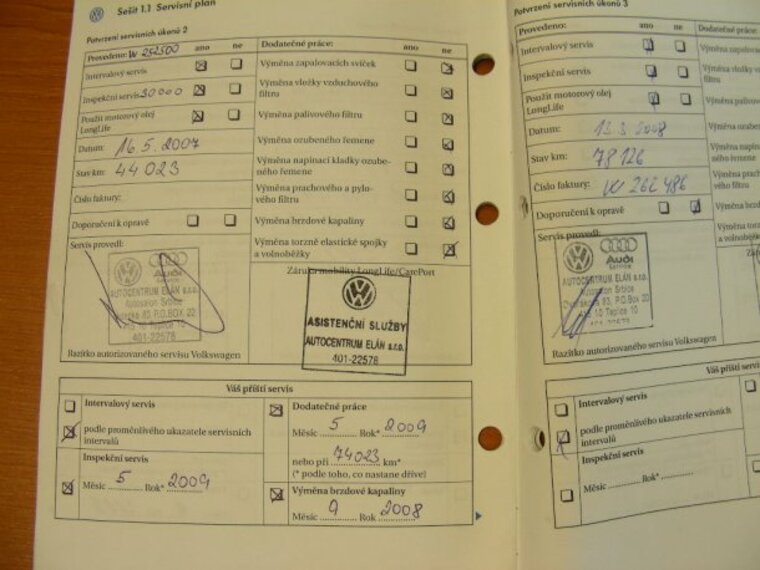 Sešit 1.1 Servisní plán
Potvrzení servisních úkonů 2
Provedeno: W 252500 ano ne
Intervalový servis
Inspekční servis 30000
Použit motorový olej
LongLife
Datum: 16.5.2007
Stav km: 44 023
Číslo faktury:
Doporučení k opravě
Servis provedl:
Audi
Service
AUTOCENTRUM ELÁN s.r.o.
Autosalon Srbice
415 10 Teplice 10
401-22578
Razítko autorizovaného servisu Volkswagen
Dodatečné práce: ano ne
Výměna zapalovacích svíček
Výměna vložky vzduchového
filtru
Výměna palivového filtru
Výměna ozubeného řemene
Výměna napínací kladky ozube-
ného řemene
Výměna prachového a pylo-
vého filtru
Výměna brzdové kapaliny
Výměna torzně elastické spojky
a volnoběžky
Záruka mobility LongLife/CarePort
ASISTENČNÍ SLUŽBY
AUTOCENTRUM ELÁN s.r.o.
401-22578
Váš příští servis
Intervalový servis
podle proměnlivého ukazatele servisních
intervalů
Inspekční servis
Měsíc 5 Rok* 2009
Dodatečné práce
Měsíc 5 Rok* 2009
nebo při 74023 km*
(* podle toho, co nastane dříve)
Výměna brzdové kapaliny
Měsíc 9 Rok 2008
Potvrzení servisních úkonů 3
Provedeno: ano ne
Intervalový servis
Inspekční servis
Použit motorový olej
LongLife
Datum: 13 3 2008
Stav km: 78126
Číslo faktury: W 262 486
Doporučení k opravě
Servis provedl:
Audi
Service
AUTOCENTRUM ELÁN s.r.o.
Autosalon Srbice
Dvořákova 83, P.O.BOX 20
415 10 Teplice 10
Razítko autorizovaného servisu Volkswagen
Dodatečné
Výměna zapalova
Výměna vložky v
filtru
Výměna palivov
Výměna ozuben
Výměna napína
ného řemene
Výměna prach
vého filtru
Výměna brzdo
Výměna torzn
a volnoběžky
Zár
Váš př
Intervalový servis
podle proměnlivého ukazatele servisních
intervalů
Inspekční servis
Měsíc Rok*